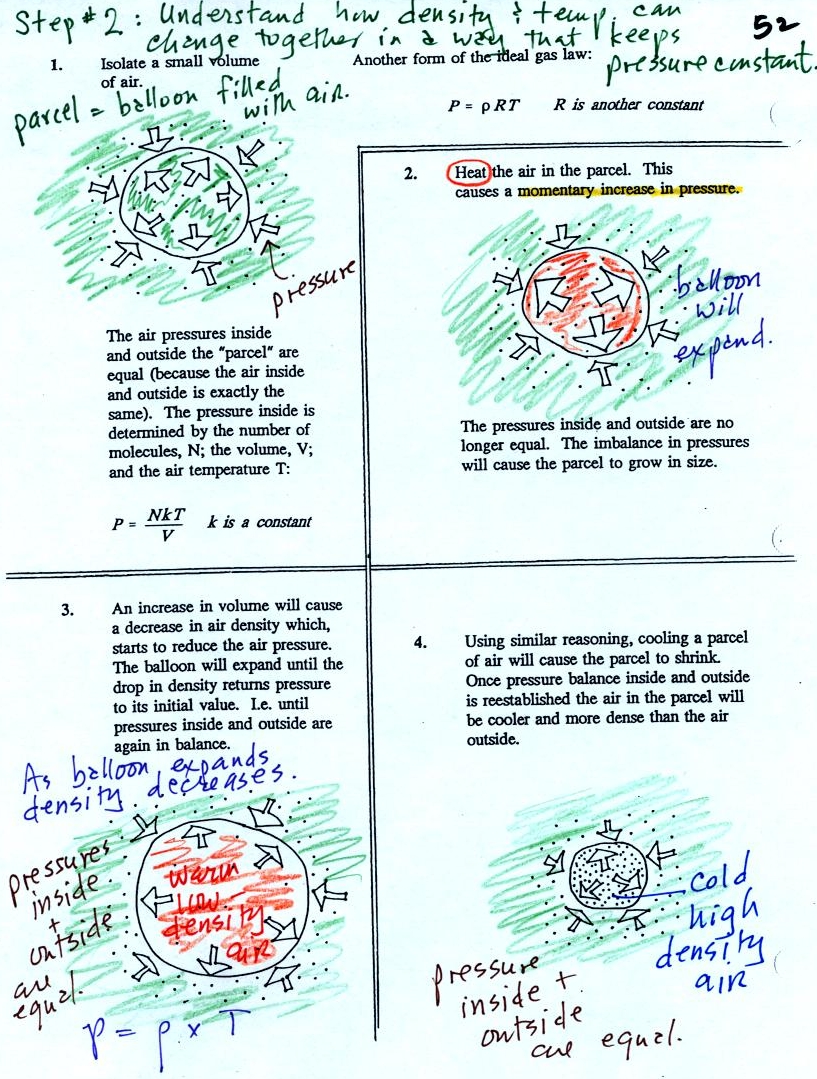 Step #2 : Understand how density & temp. can
change together in a way that keeps
pressure constant.
52
1. Isolate a small volume
of air.
parcel = balloon filled
with air.
Another form of the ideal gas law:
P = ρRT R is another constant
pressure
The air pressures inside
and outside the "parcel" are
equal (because the air inside
and outside is exactly the
same). The pressure inside is
determined by the number of
molecules, N; the volume, V;
and the air temperature T:
P = NkT / V k is a constant
2. Heat the air in the parcel. This
causes a momentary increase in pressure.
balloon
will
expand.
The pressures inside and outside are no
longer equal. The imbalance in pressures
will cause the parcel to grow in size.
3. An increase in volume will cause
a decrease in air density which,
starts to reduce the air pressure.
The balloon will expand until the
drop in density returns pressure
to its initial value. I.e. until
pressures inside and outside are
again in balance.
As balloon expands
density decreases.
pressures
inside
+
outside
are
equal.
warm
low
density
air
P = ρ x T
4. Using similar reasoning, cooling a parcel
of air will cause the parcel to shrink.
Once pressure balance inside and outside
is reestablished the air in the parcel will
be cooler and more dense than the air
outside.
cold
high
density
air
pressure
inside +
outside
are equal.